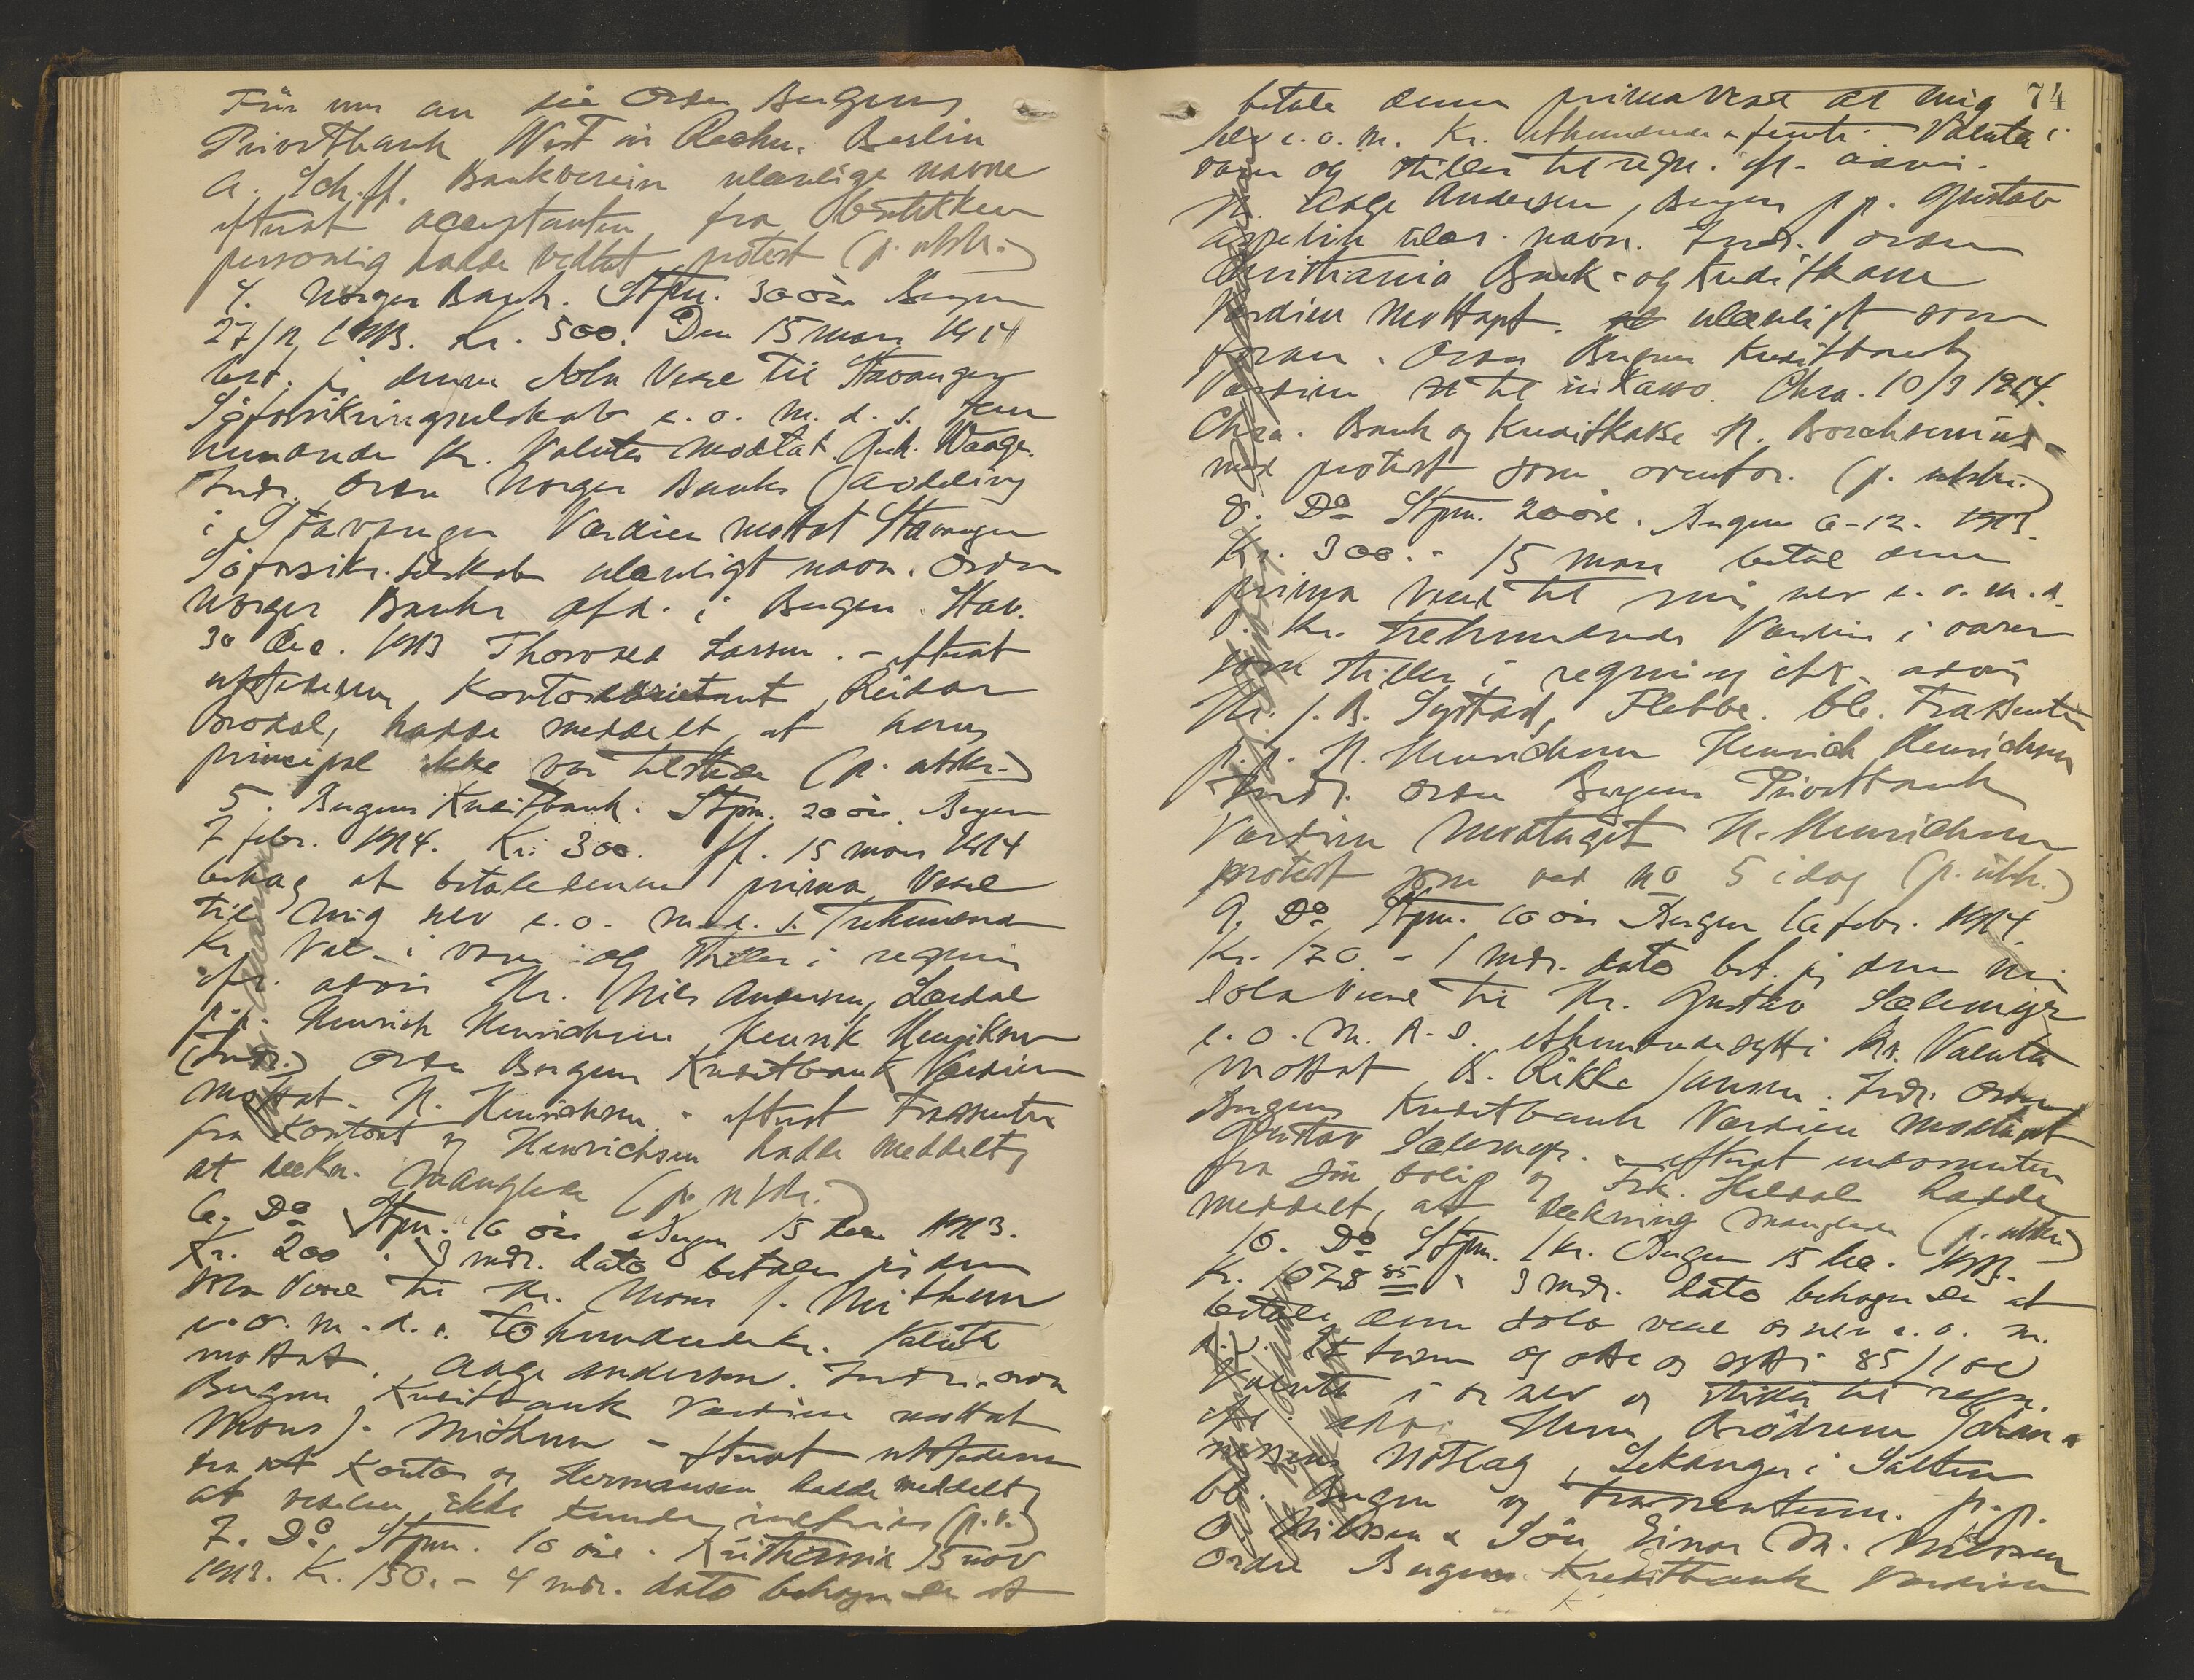 Für uns an die Order Bergens
Privatbank Wert in Rechn. Berlin
A. Sch.ff. Bankverein ulæselige navne
efterat acceptanten fra butikken
personlig hadde vedtat protest (p. utskr.)
4. Norges Bank. Stpm. 30 øre Bergen
27/12 1913. Kr. 500. Den 15 mars 1914
bet. jeg denne Sola Vexel til Stavanger
Sjøforsikringsselskab e. o. m. d. s. Fem
hundrede Kr. Valuta modtat. Waage.
Indr. Ordre Norges Banks Avdeling
i Stavanger Værdien mottat Stavanger
Søforsikr.selskab ulæseligt navn. Ordre
Norges Banks afd. i Bergen. Stav.
30 dec. 1913 Thorvald Larsen. - efterat
utstederen, Kontorassistent Reidar
Brodal, hadde meddelt, at hans
principal ikke var tilstede (p. utskr.)
5. Bergens Kreditbank. Stpm. 20 øre. Bergen
7 febr. 1914. Kr. 300. Pf. 15 mars 1914
behag at betale denne prima Vexel
til mig selv e. o. m. d. s. Trehundrede
Kr. Val. i varer og stilles i regning
ifr. advis Hr. Nils Andersen, Lærdal
p.p. Henrich Henrichsen Henrik Henriksen
(Indr.) Ordre Bergens Kreditbank Værdien
mottat. H. Henrichsen - efterat Trassenten
fra Kontoret og Henrichsen hadde meddelt,
at dækn. manglede (p. utskr.)
6. Do Stpm. 10 øre Bergen 15 dec. 1913.
Kr. 200. 3 mdr. dato betaler jeg denne
Sola Vexel til Hr. Mons J. Mithun
e. o. m. d. s. Tohundredekr. Valuta
mottat. Aage Andersen. Indr. ordre
Bergens Kreditbank Værdien mottat
Mons J. Mithun - efterat utstederen
fra sit Kontor og Hermansen hadde meddelt,
at vexelen ikke kunde indfries (p.u.)
7. Do Stpm. 10 øre. Kristiania 15 nov
1913. Kr. 150.- 4 mdr. dato behager De at
74
betale denne primaVexel at mig
selv e. o. m. Kr. ethundrede & femti. Valuta i
varer og stilles til regn. ifl. advis.
Hr. Aage Andersen, Bergen pp. Gustav
Aspelin ulæs. navn. Indr. ordre
Christiania Bank- og Kreditkasse
Værdien Mottagt. ulæseligt som
foran. Ordre Bergens Kreditbank
Værdien til inkasso. Chra. 10/3 1914.
Chra. Bank og Kreditkasse N. Borchsenius -
med protest som ovenfor. (p. utskr.)
8. Do Stpm. 20 øre. Bergen 6-12. 1913.
Kr. 300.- 15 mars betal denne
prima Vexel til mig selv e. o. m. d.
s. Kr. trehundrede Værdien i varer
som stilles i regning ifl. advis
Hr. J. B. Systad, Flebbe. bl. Trassenten
p.p. H. Henrichsen Henrich Henrichsen
Indr. Ordre Bergens Privatbank
Værdien Modtaget H. Henrichsen
protest som ved no 5 idag (p. utskr.)
9. Do Stpm. 10 øre Bergen 16 febr. 1914.
Kr. 170.- 1 mdr. dato bet. jeg denne min
Sola Vexel til Hr. Gustav Sælemyr
e. o. m. d. s. ethundredesytti Kr. Valuta
mottat B. Rikke Jansen. Indr. Ordre
Bergens Kreditbank Værdien modtaget
Gustav Sælemyr. - efterat endossenten
fra sin bolig og Frk. Heldal hadde
meddelt, at dækning manglede (p. utskr.)
10. Do Stpm. 1 kr. Bergen 15 dec. 1913.
Kr. 1078 85 3 mdr. dato behager De at
betale denne Sola vexel os selv e. o. m.
d.s. Et tusen og otte og sytti 85/100
Valuta i os selv og stilles til regn.
ifl. advis Herrer Brødrene Johan-
nessens Notlag, Lekanger i Salten
bl. Bergen og trassentene. p. p.
O. Nilssen & Søn Einar M. Nilssen
Ordre Bergens Kreditbank Værdien